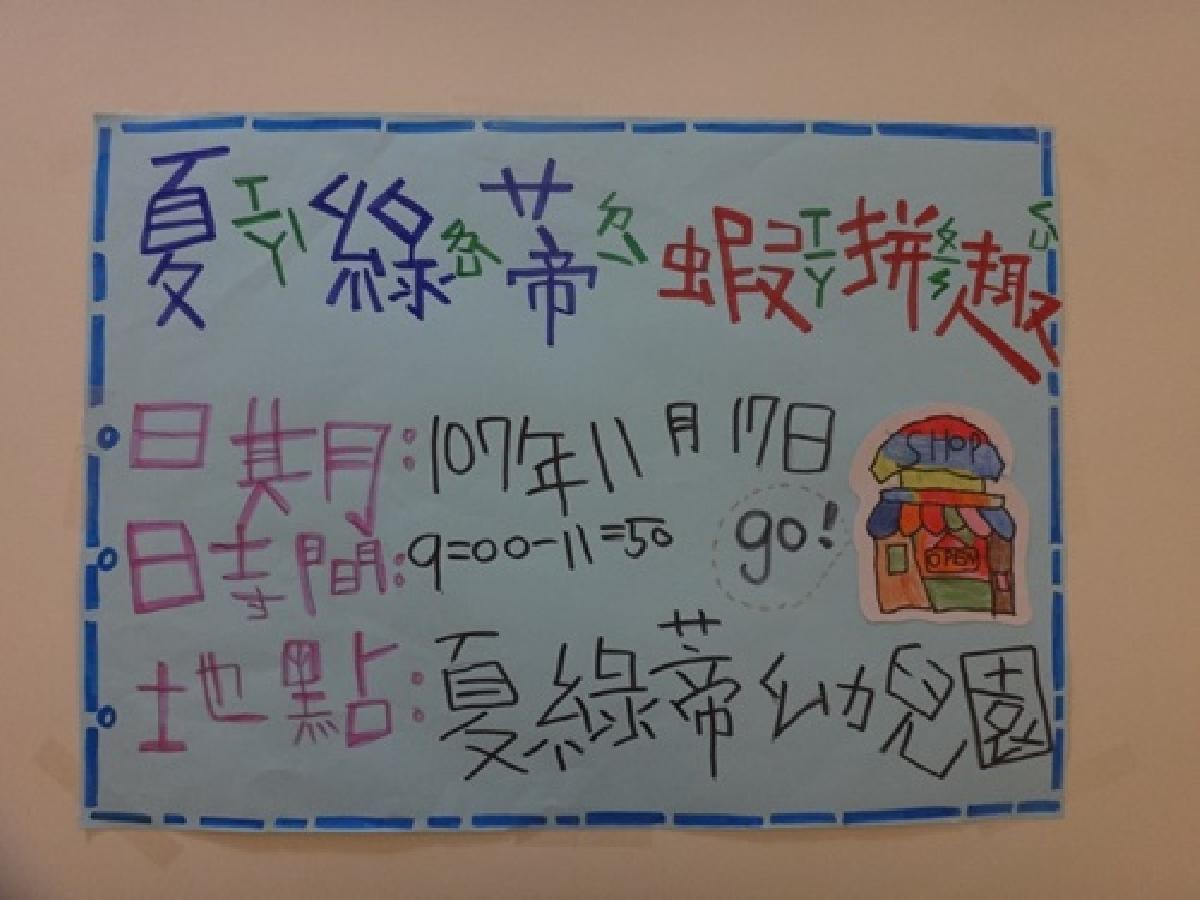 夏ㄒㄧㄚˋ綠ㄌㄩˋ蒂ㄉㄧˋ 蝦ㄒㄧㄚ拼ㄆㄧㄣ趣ㄑㄩˋ
日期:107年11月17日
時間:9=00-11=50 go!
地點:夏綠蒂幼兒園
SHOP
OPEN